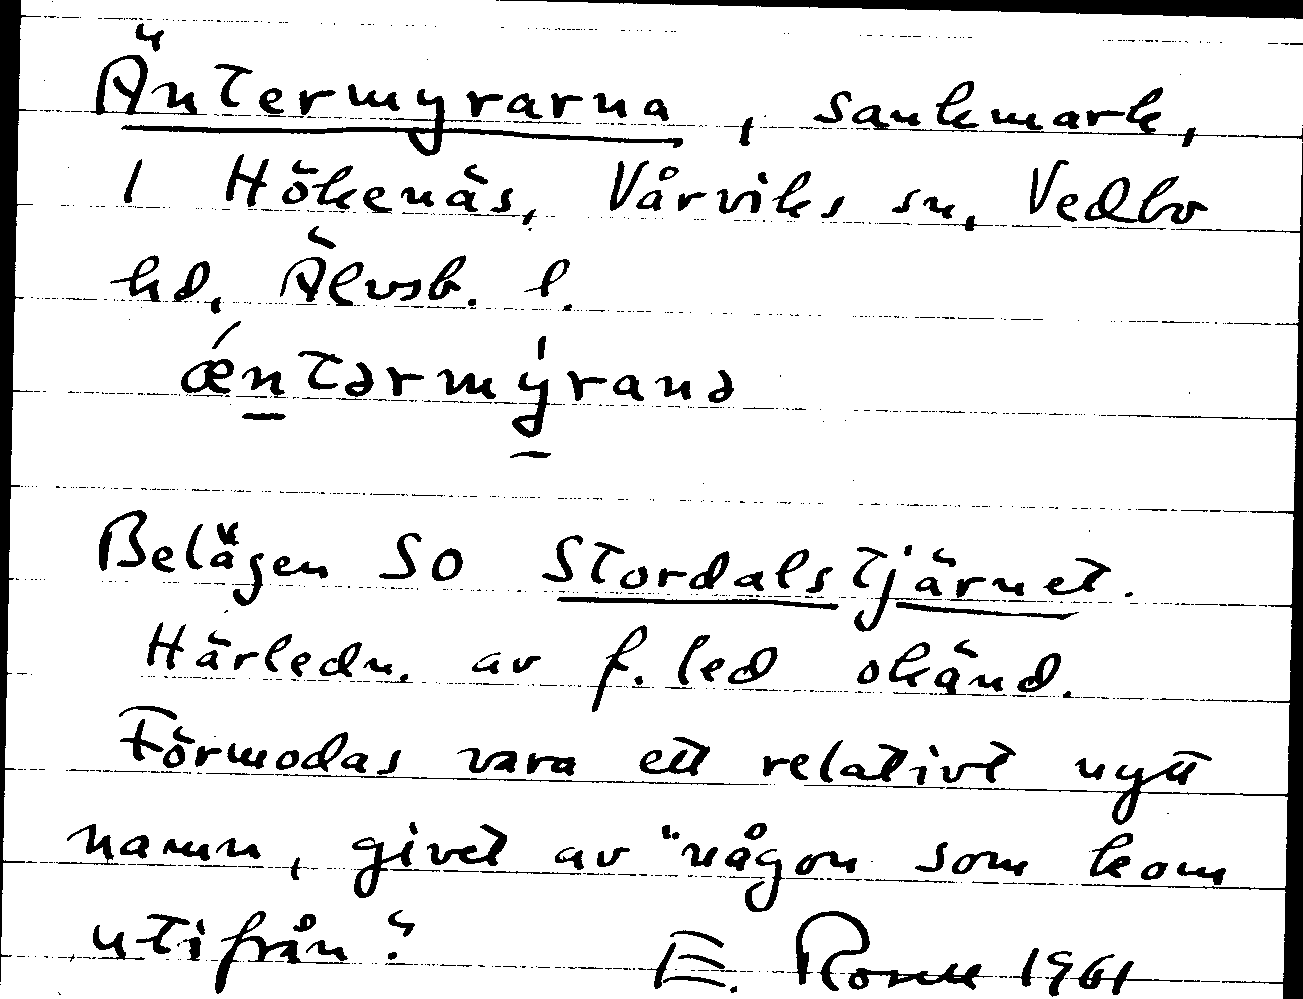 Äntermyrarna, sankmark,
i Hökenäs, Vårviks sn, Vedbo
hd, Älvsb. l.
ǽntərmýranə
Belägen SO Stordalstjärnet.
Härledn. av f. led okänd.
Förmodas vara ett relativt nytt
namn, givet av "någon som kom
utifrån".
E. 1961